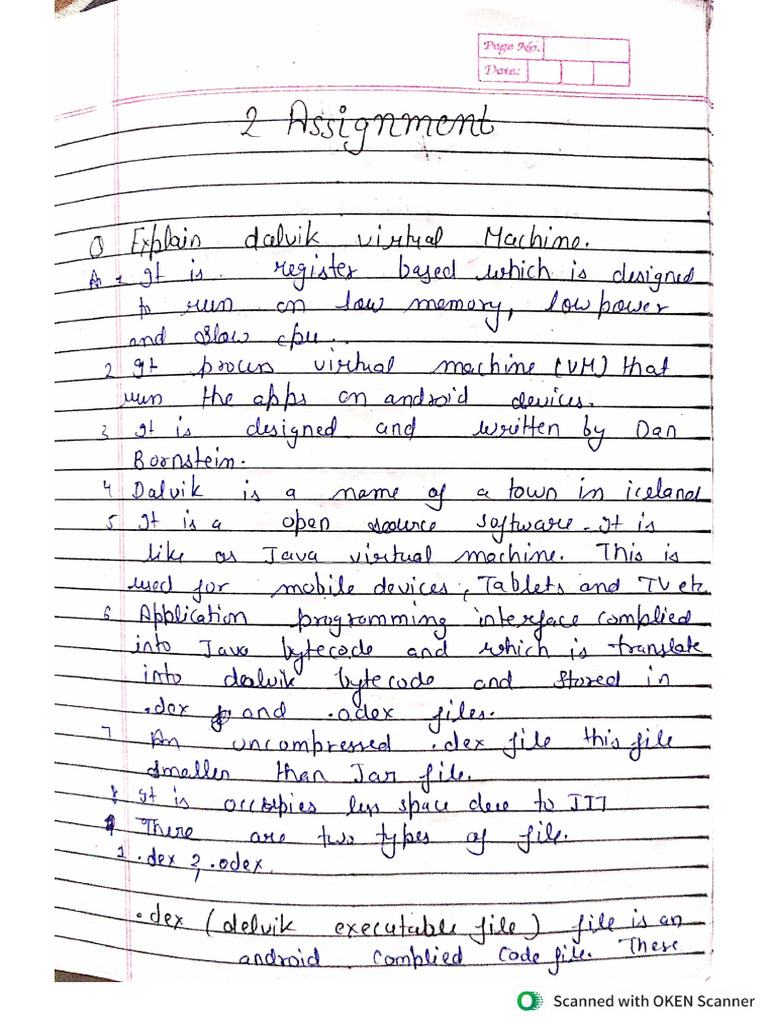 Page No.
Date:
2 Assignment
Q Explain dalvik virtual Machine.
A 1 It is register based which is designed
to run on low memory, low power
and slow cpu..
2 It proces virtual machine (VM) that
run the apps on android devices.
3 It is designed and written by Dan
Bornstein.
4 Dalvik is a name of a town in iceland
5 It is a open source software. It is
like as Java virtual machine. This is
used for mobile devices, Tablets and TV etc
6 Application programming interface complied
into Java bytecode and which is translate
into dalvik bytecode and stored in
.dex and .odex files.
7 An uncompressed .dex file this file
smaller than Jar file.
8 It is occupies less space due to JIT
9 There are two types of file.
1 .dex 2, .odex.
.dex (delvik executable file) file is an
android complied code file. There
Scanned with OKEN Scanner